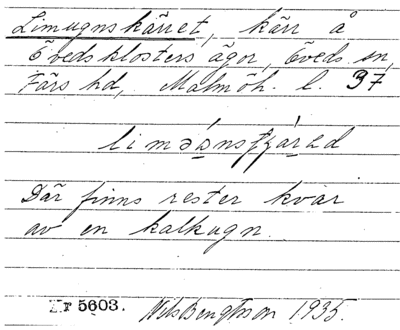 Limugnskärret, kärr å
Övedsklosters ägor, Öveds sn,
Färs hd, Malmöh. l. 37
Där finns rester kvar
av en kalkugn.
Nr 5603. Nils Bengtsson 1935.